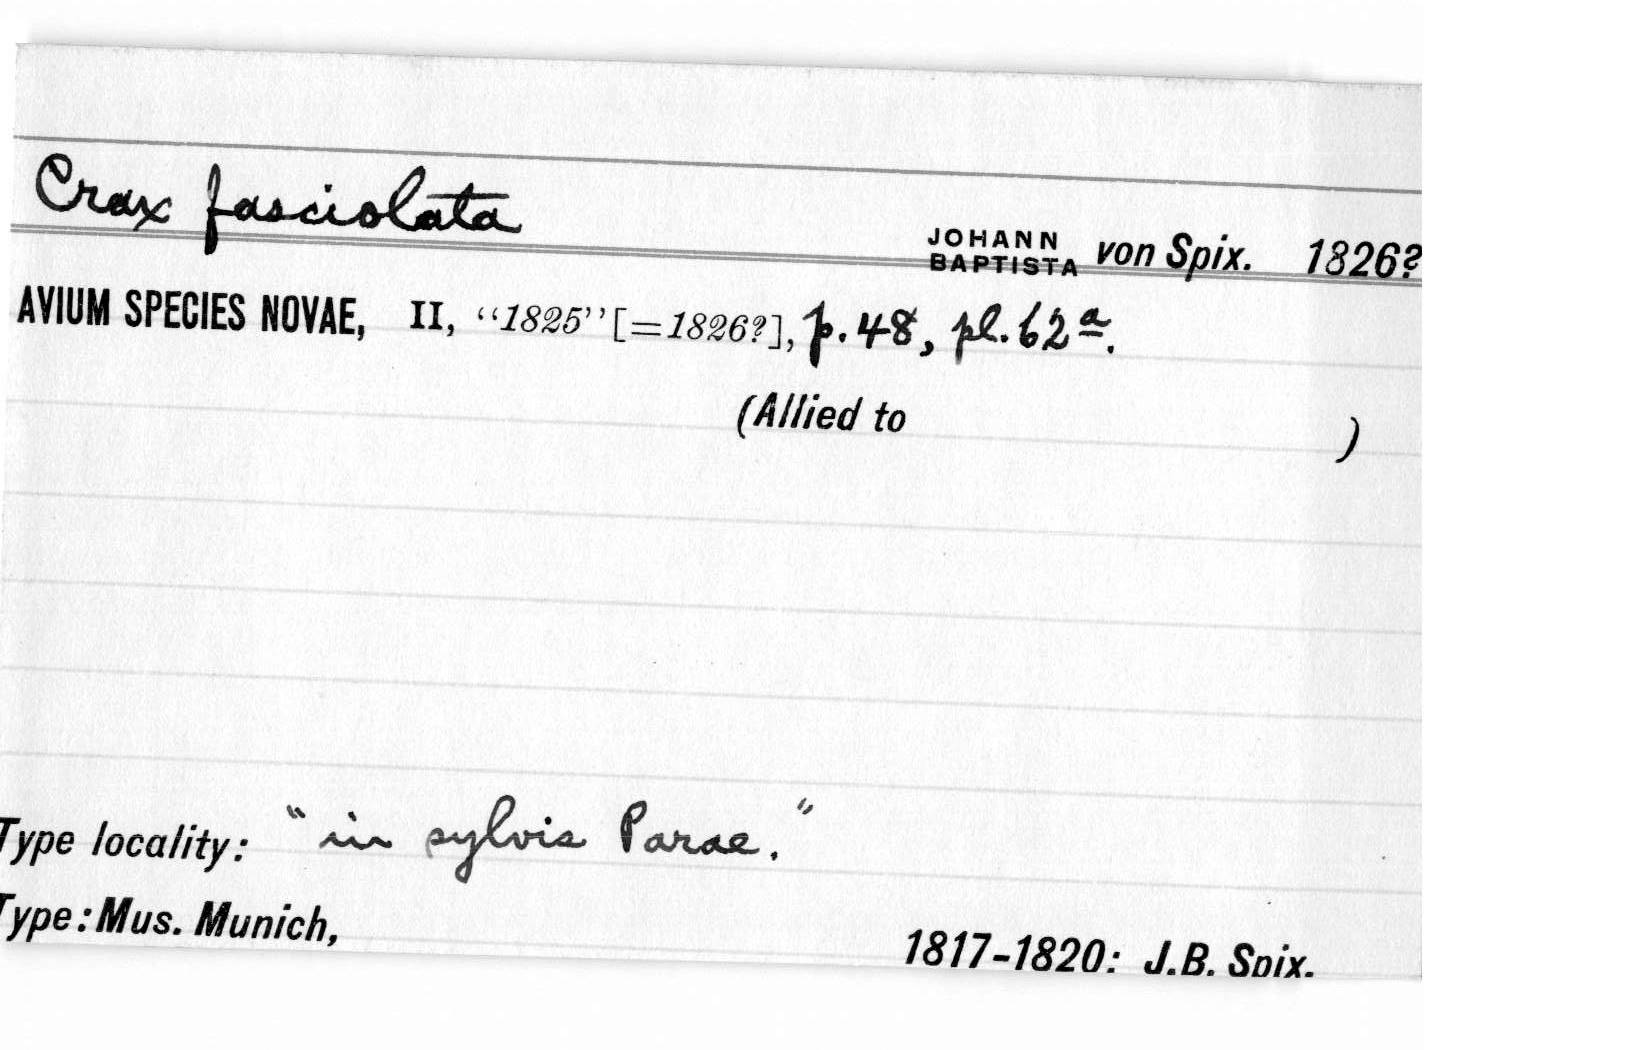 Crax fasciolata
JOHANN BAPTISTA von Spix. 1826?
AVIUM SPECIES NOVAE, II, "1825" [=1826?], p. 48, pl. 62a.
(Allied to )
Type locality: "in sylvis Parae."
Type: Mus. Munich,
1817-1820: J.B. Spix.